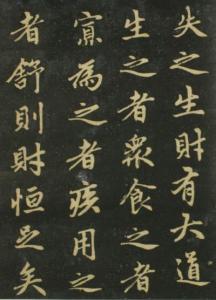 失之生財有大道
生之者衆食之者
寡為之者疾用之
者舒則財恒足矣